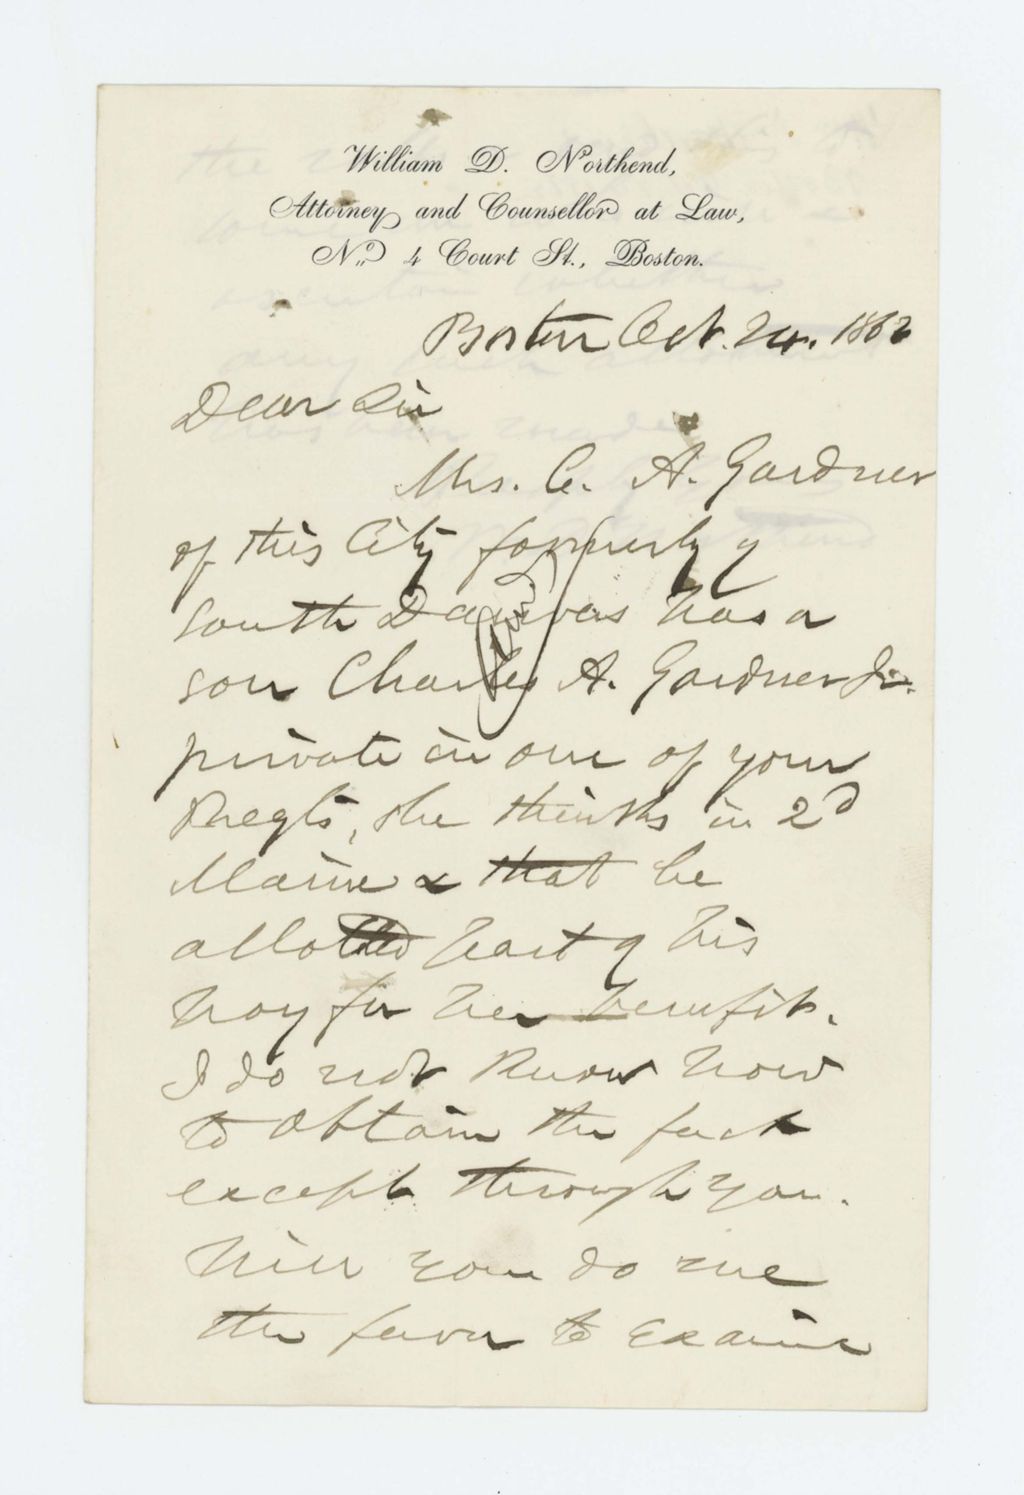 William D. Northend,
Attorney and Counsellor at Law,
No. 4 Court St., Boston.
Boston Oct. 24. 1862
Dear Sir
Mrs. C. A. Gardner
of this City formerly of
South Danvers has a
son Charles A. Gardner Jr.
private in one of your
Regts, she thinks in 2d
Maine & that he
allotted part of his
pay for her benefit.
I do not know how
to obtain the fact
except through you.
Will you do me
the favor to examine